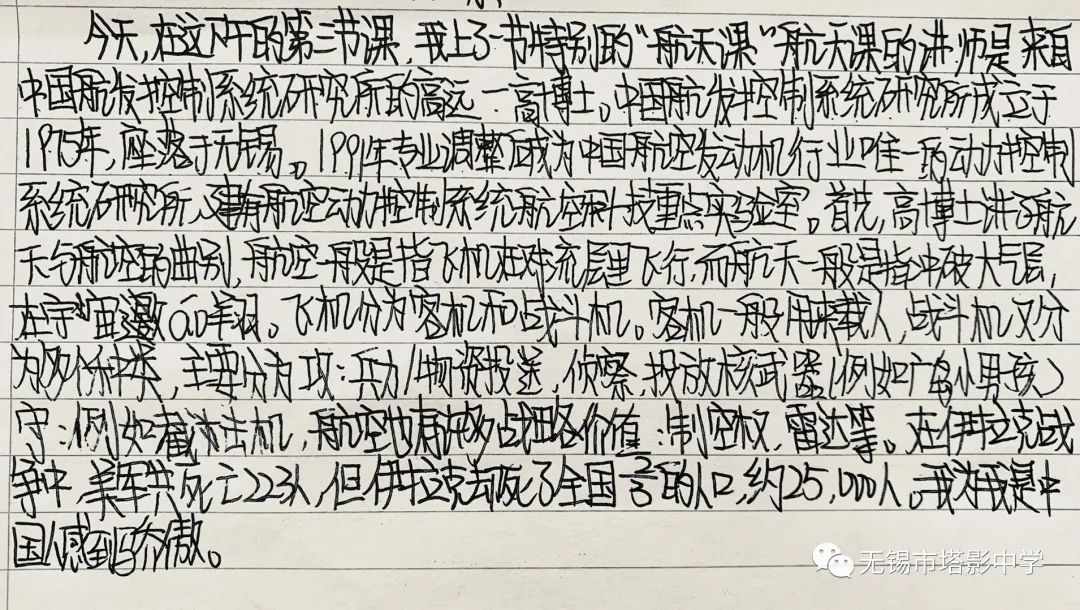 今天,在这下午的第三节课,我上了一节特别的“航天课”航天课的讲师是来自
中国航发控制系统研究所的高远—高博士。中国航发控制系统研究所成立于
1975年,座落于无锡。1991年专业调整后成为中国航空发动机行业唯一的动力控制
系统研究所,建有航空动力控制系统航空科技重点实验室。首先,高博士讲了航
天与航空的曲别,航空一般是指飞机在对流层里飞行,而航天一般是指冲破大气层,
在宇宙遨翔。飞机分为客机和战斗机。客机一般用来载人,战斗机又分
为多种种类,主要分为攻:兵力/物资投送,侦察,投放核武器(例如广岛小男孩)
守:例如截击机,航空也有战略价值:制空权,雷达等。在伊拉克战
争中,美军共死亡223人,但伊拉克却死了全国的人口,约25,000人。我为我是中
国人感到骄傲。
无锡市塔影中学